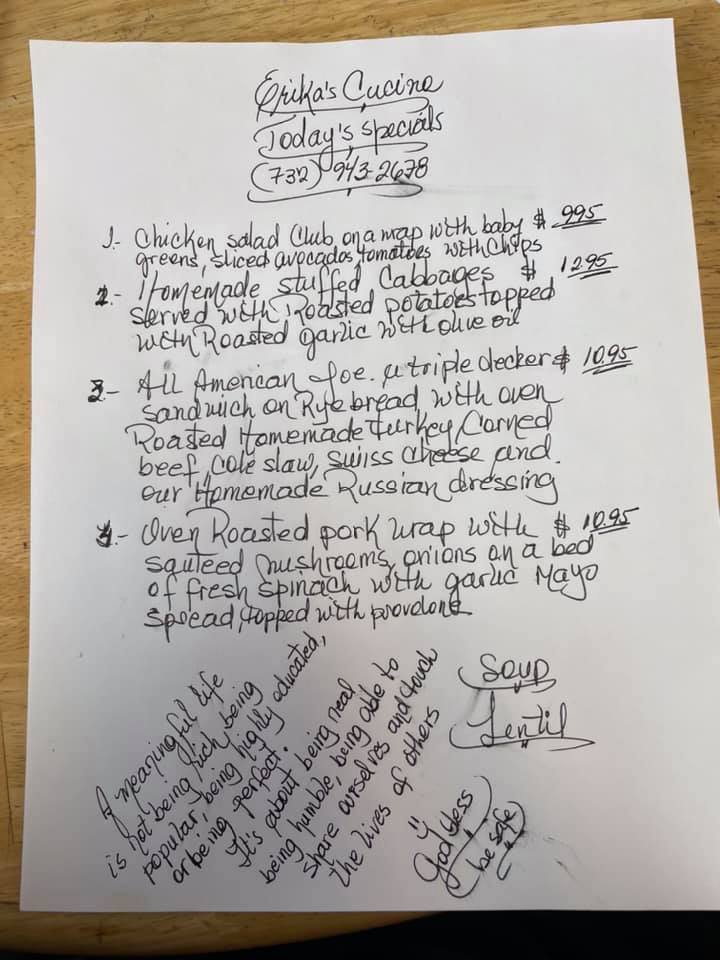 Erika's Cucina
Today's specials
(732) 943-2678
1.- Chicken salad Club on a wrap with baby $ 995
greens, sliced avocados, tomatoes with Chips
2.- Homemade stuffed Cabbages $ 12.95
served with Roasted potatoes topped
with Roasted garlic with olive oil
3.- All American Joe. a triple decker $ 10.95
sandwich on Rye bread with oven
Roasted Homemade Turkey, Corned
beef, cole slaw, swiss cheese and
our Homemade Russian dressing
4.- Oven Roasted pork wrap with $ 10.95
sauteed mushrooms, onions on a bed
of fresh spinach with garlic Mayo
spread, topped with provolone
A meaningful life
is not being rich, being
popular, being highly educated,
or being perfect.
It's about being real
being humble, being able to
share ourselves and touch
the lives of others
Soup
Lentil
"God bless
be safe"